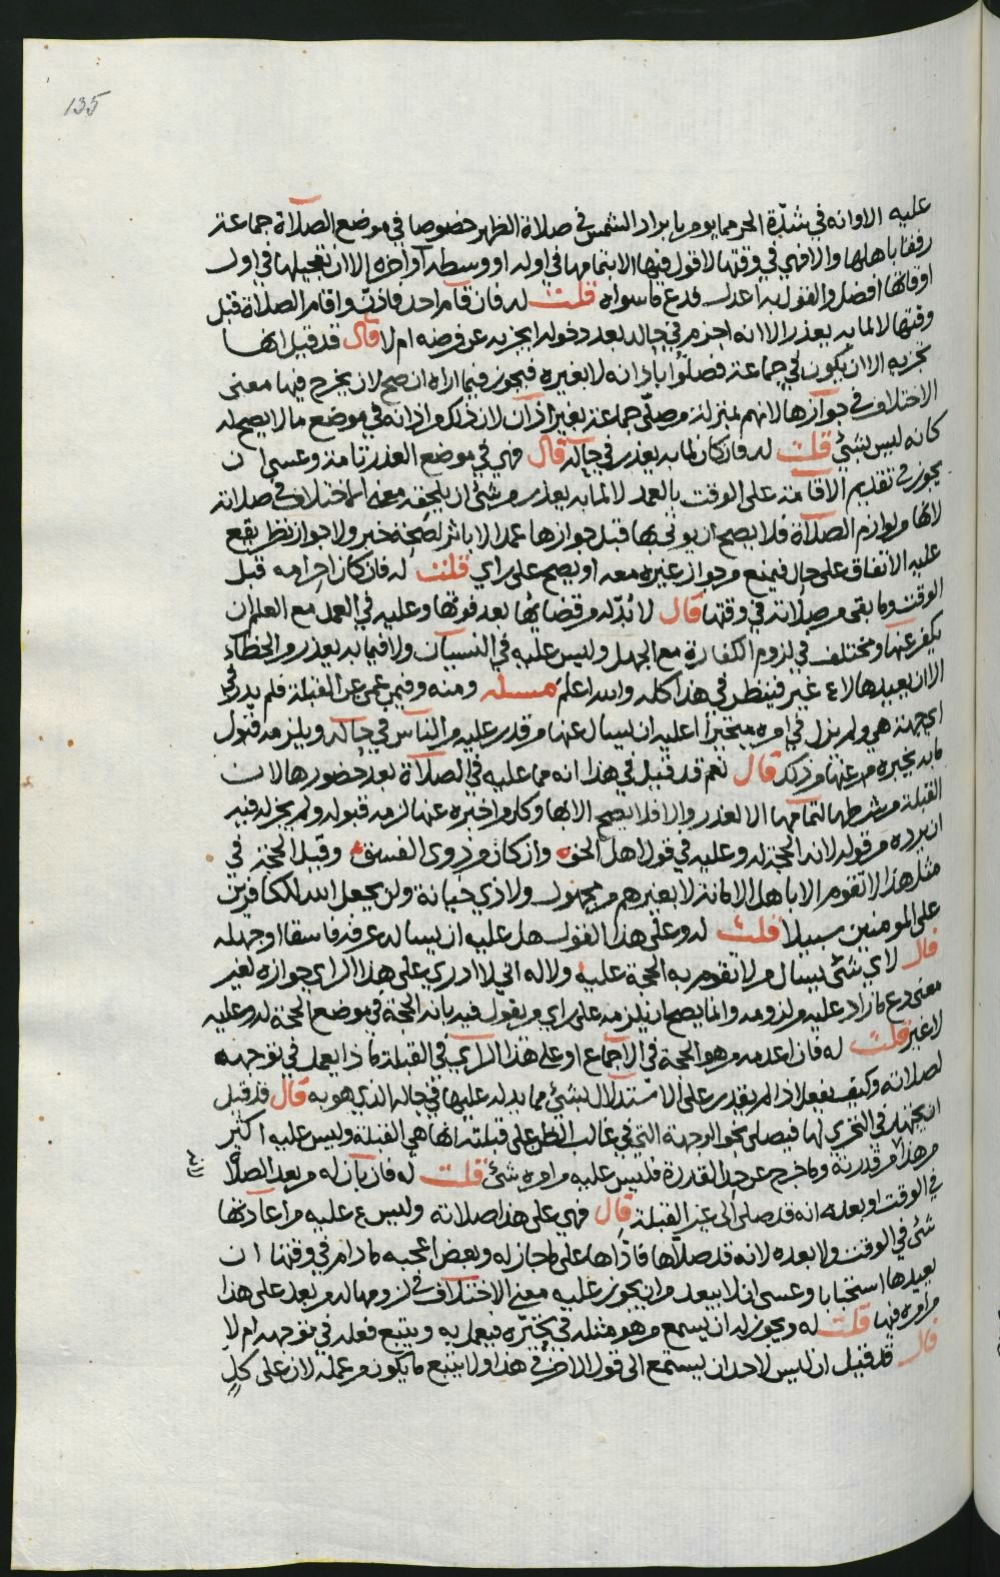 135
عليه الا وانه في شدة الحر مما يومر بابراد الشمس في صلاة الظهر خصوصا في موضع الصلاة جماعة
رفقا باهلها والا فهي في وقتها لا قول فيها الا بتمامها في اوله او وسطه او اخره الا ان تعجيلها في اول
اوقاتها افضل والقول به اعدل فدع ما سواه قلت له فان قام احد فاذن واقام الصلاة قبل
وقتها لا لما به يعذر الا انه احرم في حاله بعد دخوله ايجزيه عن فرضه ام لا قال قد قيل انها
تجزيه الا ان يكون في جماعة فصلوا باذانه لا بغيره فيجوز فيما اراه ان صح لان يخرج فيها معنى
الاختلاف في جوازها لانهم بمنزلة من صلى جماعة بغير اذان لان ذلك واذانه في موضع ما لا يصح له
كانه ليس بشئ قلت له فان كان لما به يعذر في حاله قال فهي في موضع العذر تامة وعسى ان
يجوز في تقديم الاقامة على الوقت بالعمد لا لما به يعذر من شئ ان يلحقه معنى الاختلاف في صلاته
لانها من لوازم الصلاة فلا يصح ان يوتى بها قبل جوازها عمدا الا باثر لصحة خبر ولا جواز نظر يقع
عليه الاتفاق على حال فيمنع من جواز غيره معه او يصح على راي قلت له فان كان احرامه قبل
الوقت وما بقى من صلاته في وقتها قال لا بد له من قضائها بعد فوتها وعليه في العمد مع العلم ان
يكفر عنها ومختلف في لزوم الكفارة مع الجهل وليس عليه في النسيان ولا فيما به يعذر من الخطاء
الا ان يعيدها لا ع غير فينظر في هذا كله والله اعلم مسئلة ومنه وفيمن عمى عن القبلة فلم يدر في
اي جهة هي ولم يزل في امره متحيرا اعليه ان يسال عنها من قدر عليه من الناس في حاله ويلزمه قبول
ما به يخبره من عنها من ذلك قال نعم قد قيل في هذا انه مما عليه في الصلاة بعد حضورها لان
القبلة من شرطها لتمامها الا لعذر والا فلا يصح الا بها وكل من اخبره عنها لزمه قبوله ولم يجز له فيه
ان يرده من قوله لانه الحجة له وعليه في قول اهل الحق وان كان من ذوى الفسق وقيل الحجة في
مثل هذا لا تقوم الا باهل الامانة لا بغيرهم من مجهول ولا ذي خيانة ولن يجعل الله للكافرين
على المومنين سبيلا قلت له وعلى هذا القول هل عليه ان يسال من عرفه فاسقا او جهله
قال لاي شئ يسال من لا تقوم به الحجة عليه ولا له اني لا ادري على هذا الراي جوازه لغير
معنى دع ما زاد عليه من لزومه وانما يصح ان يلزمه على راي من يقول فيه بانه الحجة في موضع الحجة له وعليه
لا غير قلت له فان اعدمه من هو الحجة في الاجماع او على هذا الراي في القبلة ما ذا يعمل في توجهه
لصلاته وكيف يفعل اذا لم يقدر على الاستدلال بشئ مما يدله عليها في حاله الذي هو به قال قد قيل
ان يجتهد في التحري لها فيصلى نحو الوجهة التي في غالب الظن على قبلته انها هي القبلة وليس عليه اكثر
من هذا من قدرته وما خرج عن حد القدرة فليس عليه من امره شئ قلت له فان بان له من بعد الصلاة
في الوقت او بعده انه قد صلى الى غير القبلة قال فهي على هذا صلاته وليس ع عليه من اعادتها
شئ في الوقت ولا بعده لانه قد صلاها فاداها على ما جاز له وبعض اعجبه ما دام في وقتها ان
يعيدها استحبابا وعسى ان لا يبعد من ان يجوز عليه معنى الاختلاف في لزومها له من بعد على هذا
من امره فيها قلت له ويجوز له ان يسمع من هو مثله في تحيره فيعمل به ويتبع فعله في توجهه ام لا
قال قد قيل ان ليس لاحد ان يستمع الى قول الاخر في هذا ولا يتبع ما يكون من عمله لان على كل